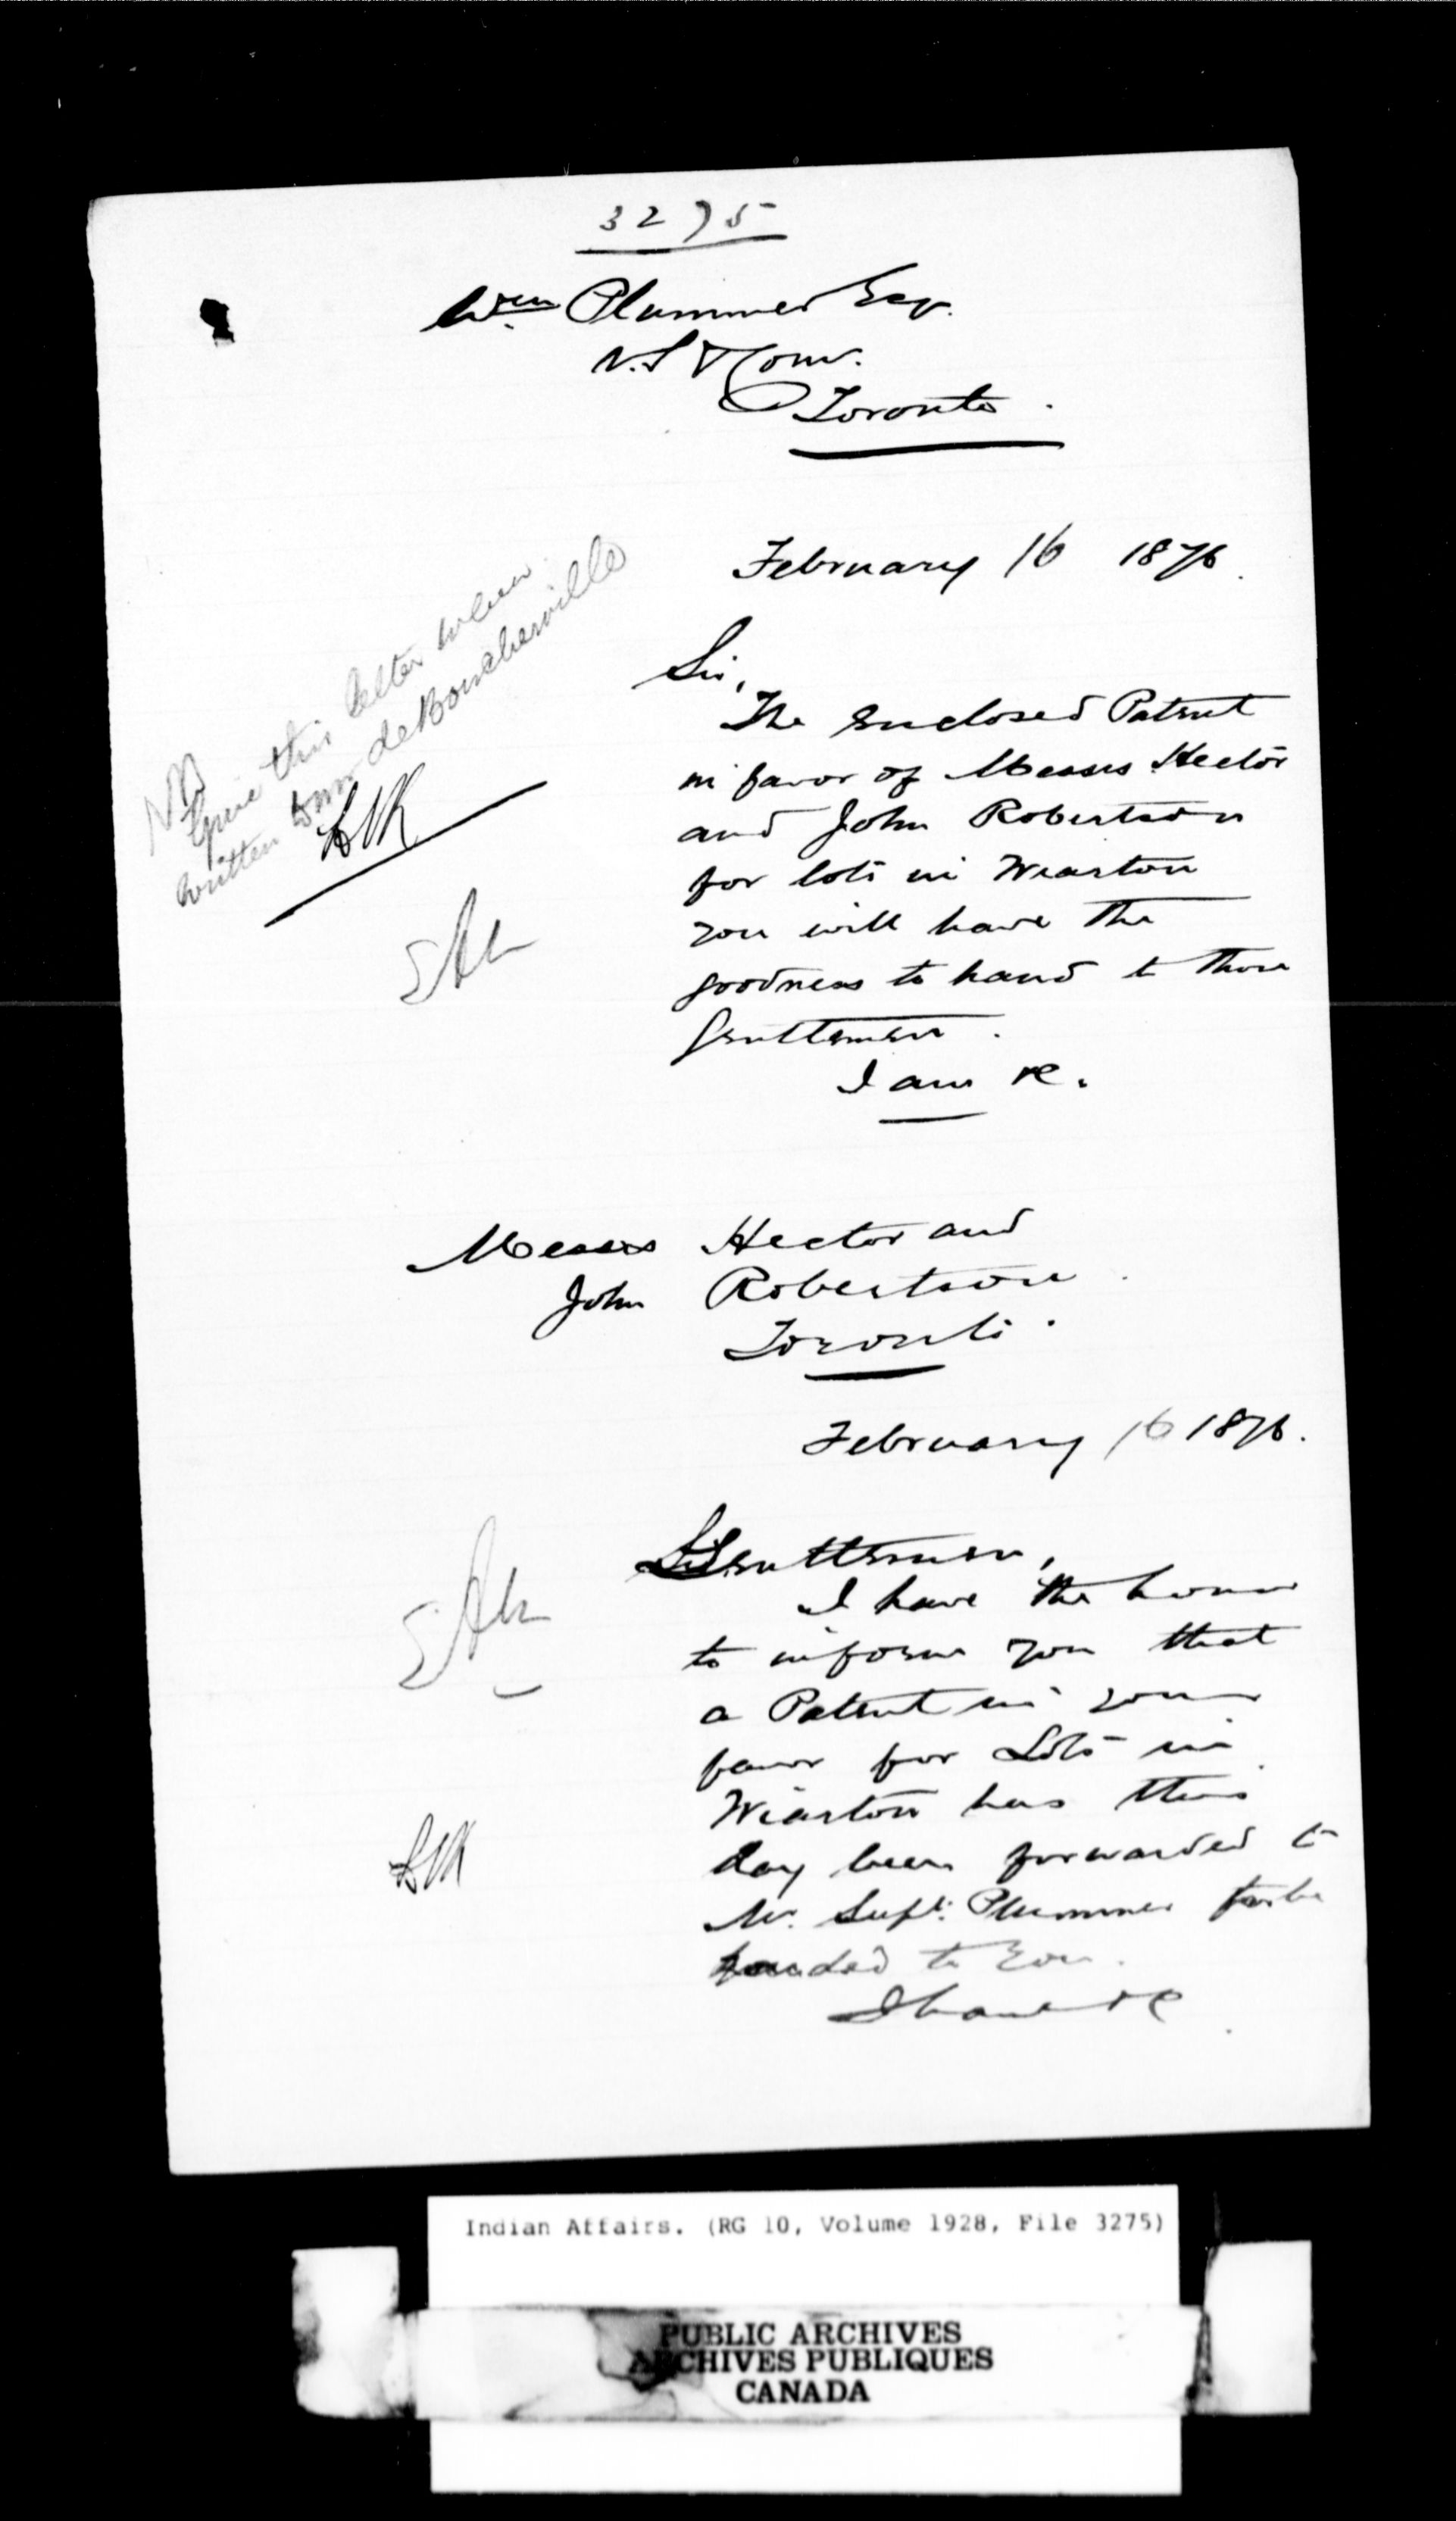 3275
Wm Plummer Esqr.
V. S & Comr.
Toronto.
February 16 1876.
NB
Give this letter when
written to Mr deBoucherville
Sir,
The enclosed Patent
in favor of Messrs Hector
and John Robertson
for lots in Wiarton
you will have the
goodness to hand to those
Gentlemen.
I am &c.
Messrs Hector and
John Robertson
Toronto.
February 16 1876.
Gentlemen,
I have the honor
to inform you that
a Patent in your
favor for Lots in
Wiarton has this
day been forwarded to
Mr. Supt. Plummer to be
handed to you.
I have &c
Indian Affairs. (RG 10, Volume 1928, File 3275)
PUBLIC ARCHIVES
ARCHIVES PUBLIQUES
CANADA